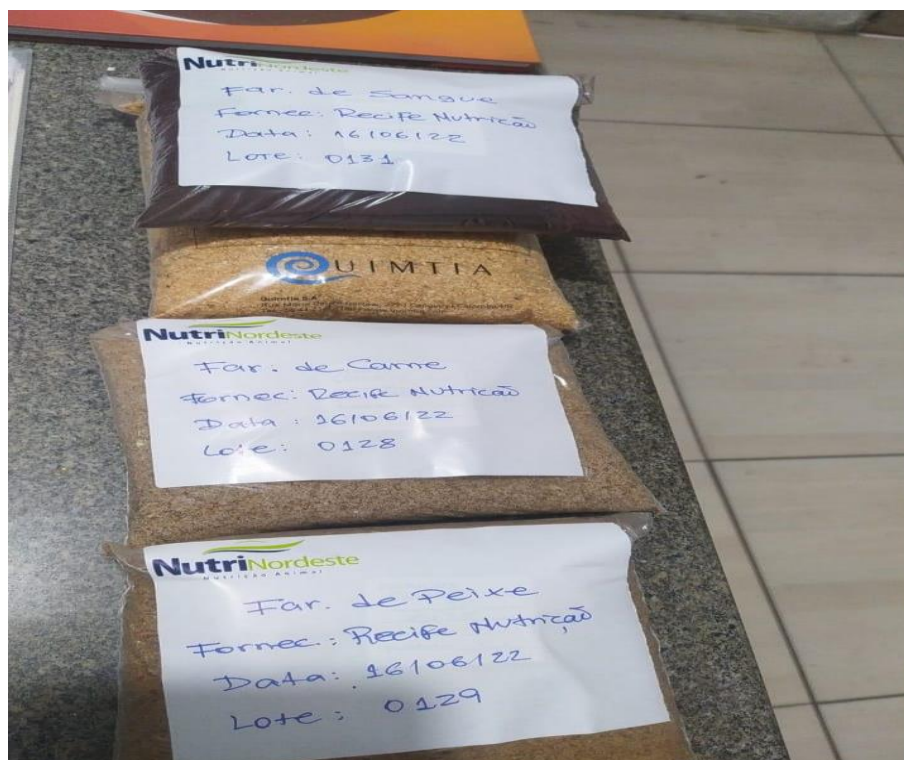 NutriNordeste
Nutrição Animal
Far. de Sangue
Fornec: Recife Nutricão
Data: 16/06/22
Lote: 0131
QUIMTIA
Quimtia S.A.
NutriNordeste
Nutrição Animal
Far. de Carne
Fornec: Recife Nutricão
Data: 16/06/22
Lote: 0128
NutriNordeste
Nutrição Animal
Far. de Peixe
Fornec.: Recife Nutrição
Data: 16/06/22
Lote: 0129